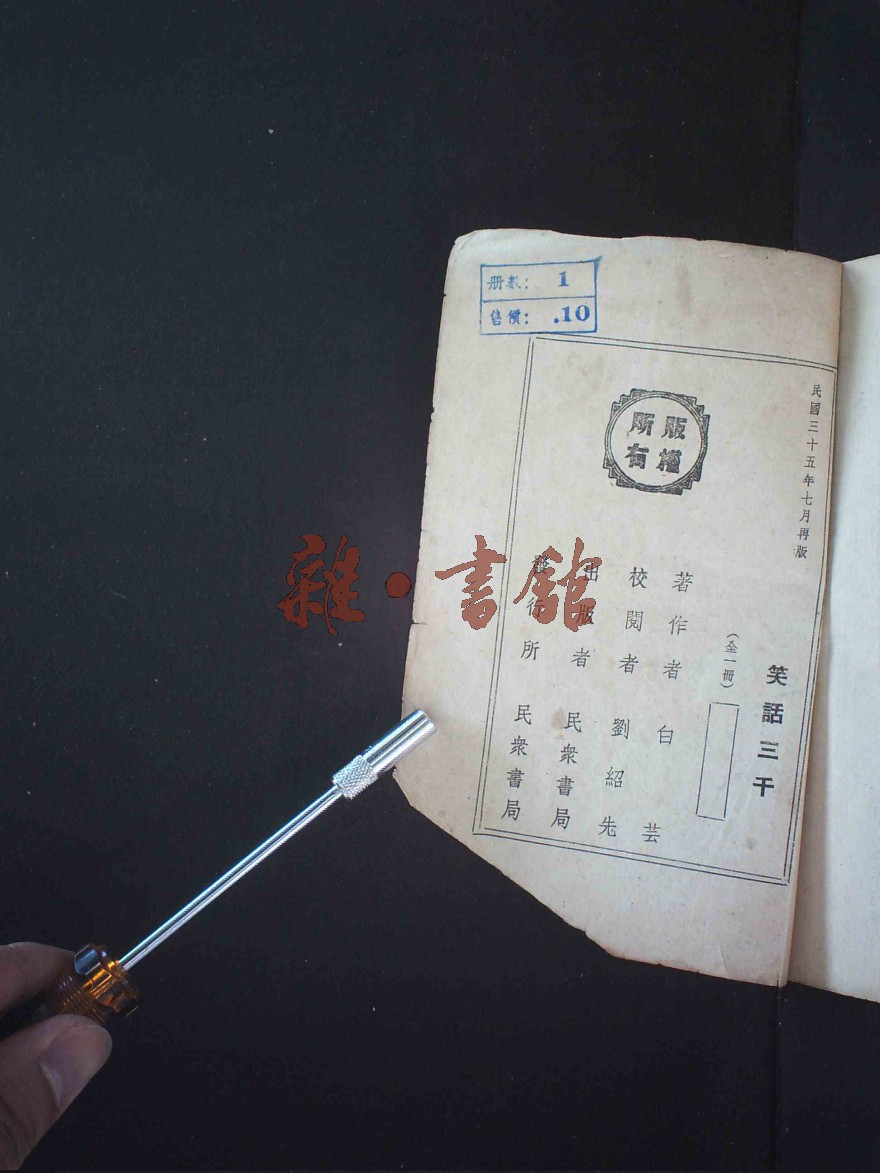 册数: 1
售價: .10
民國三十五年七月再版
版權
所有
笑話三千
（全一冊）
著作者 白芸
校閱者 劉紹先
出版者 民衆書局
發行所 民衆書局
雜·書舘